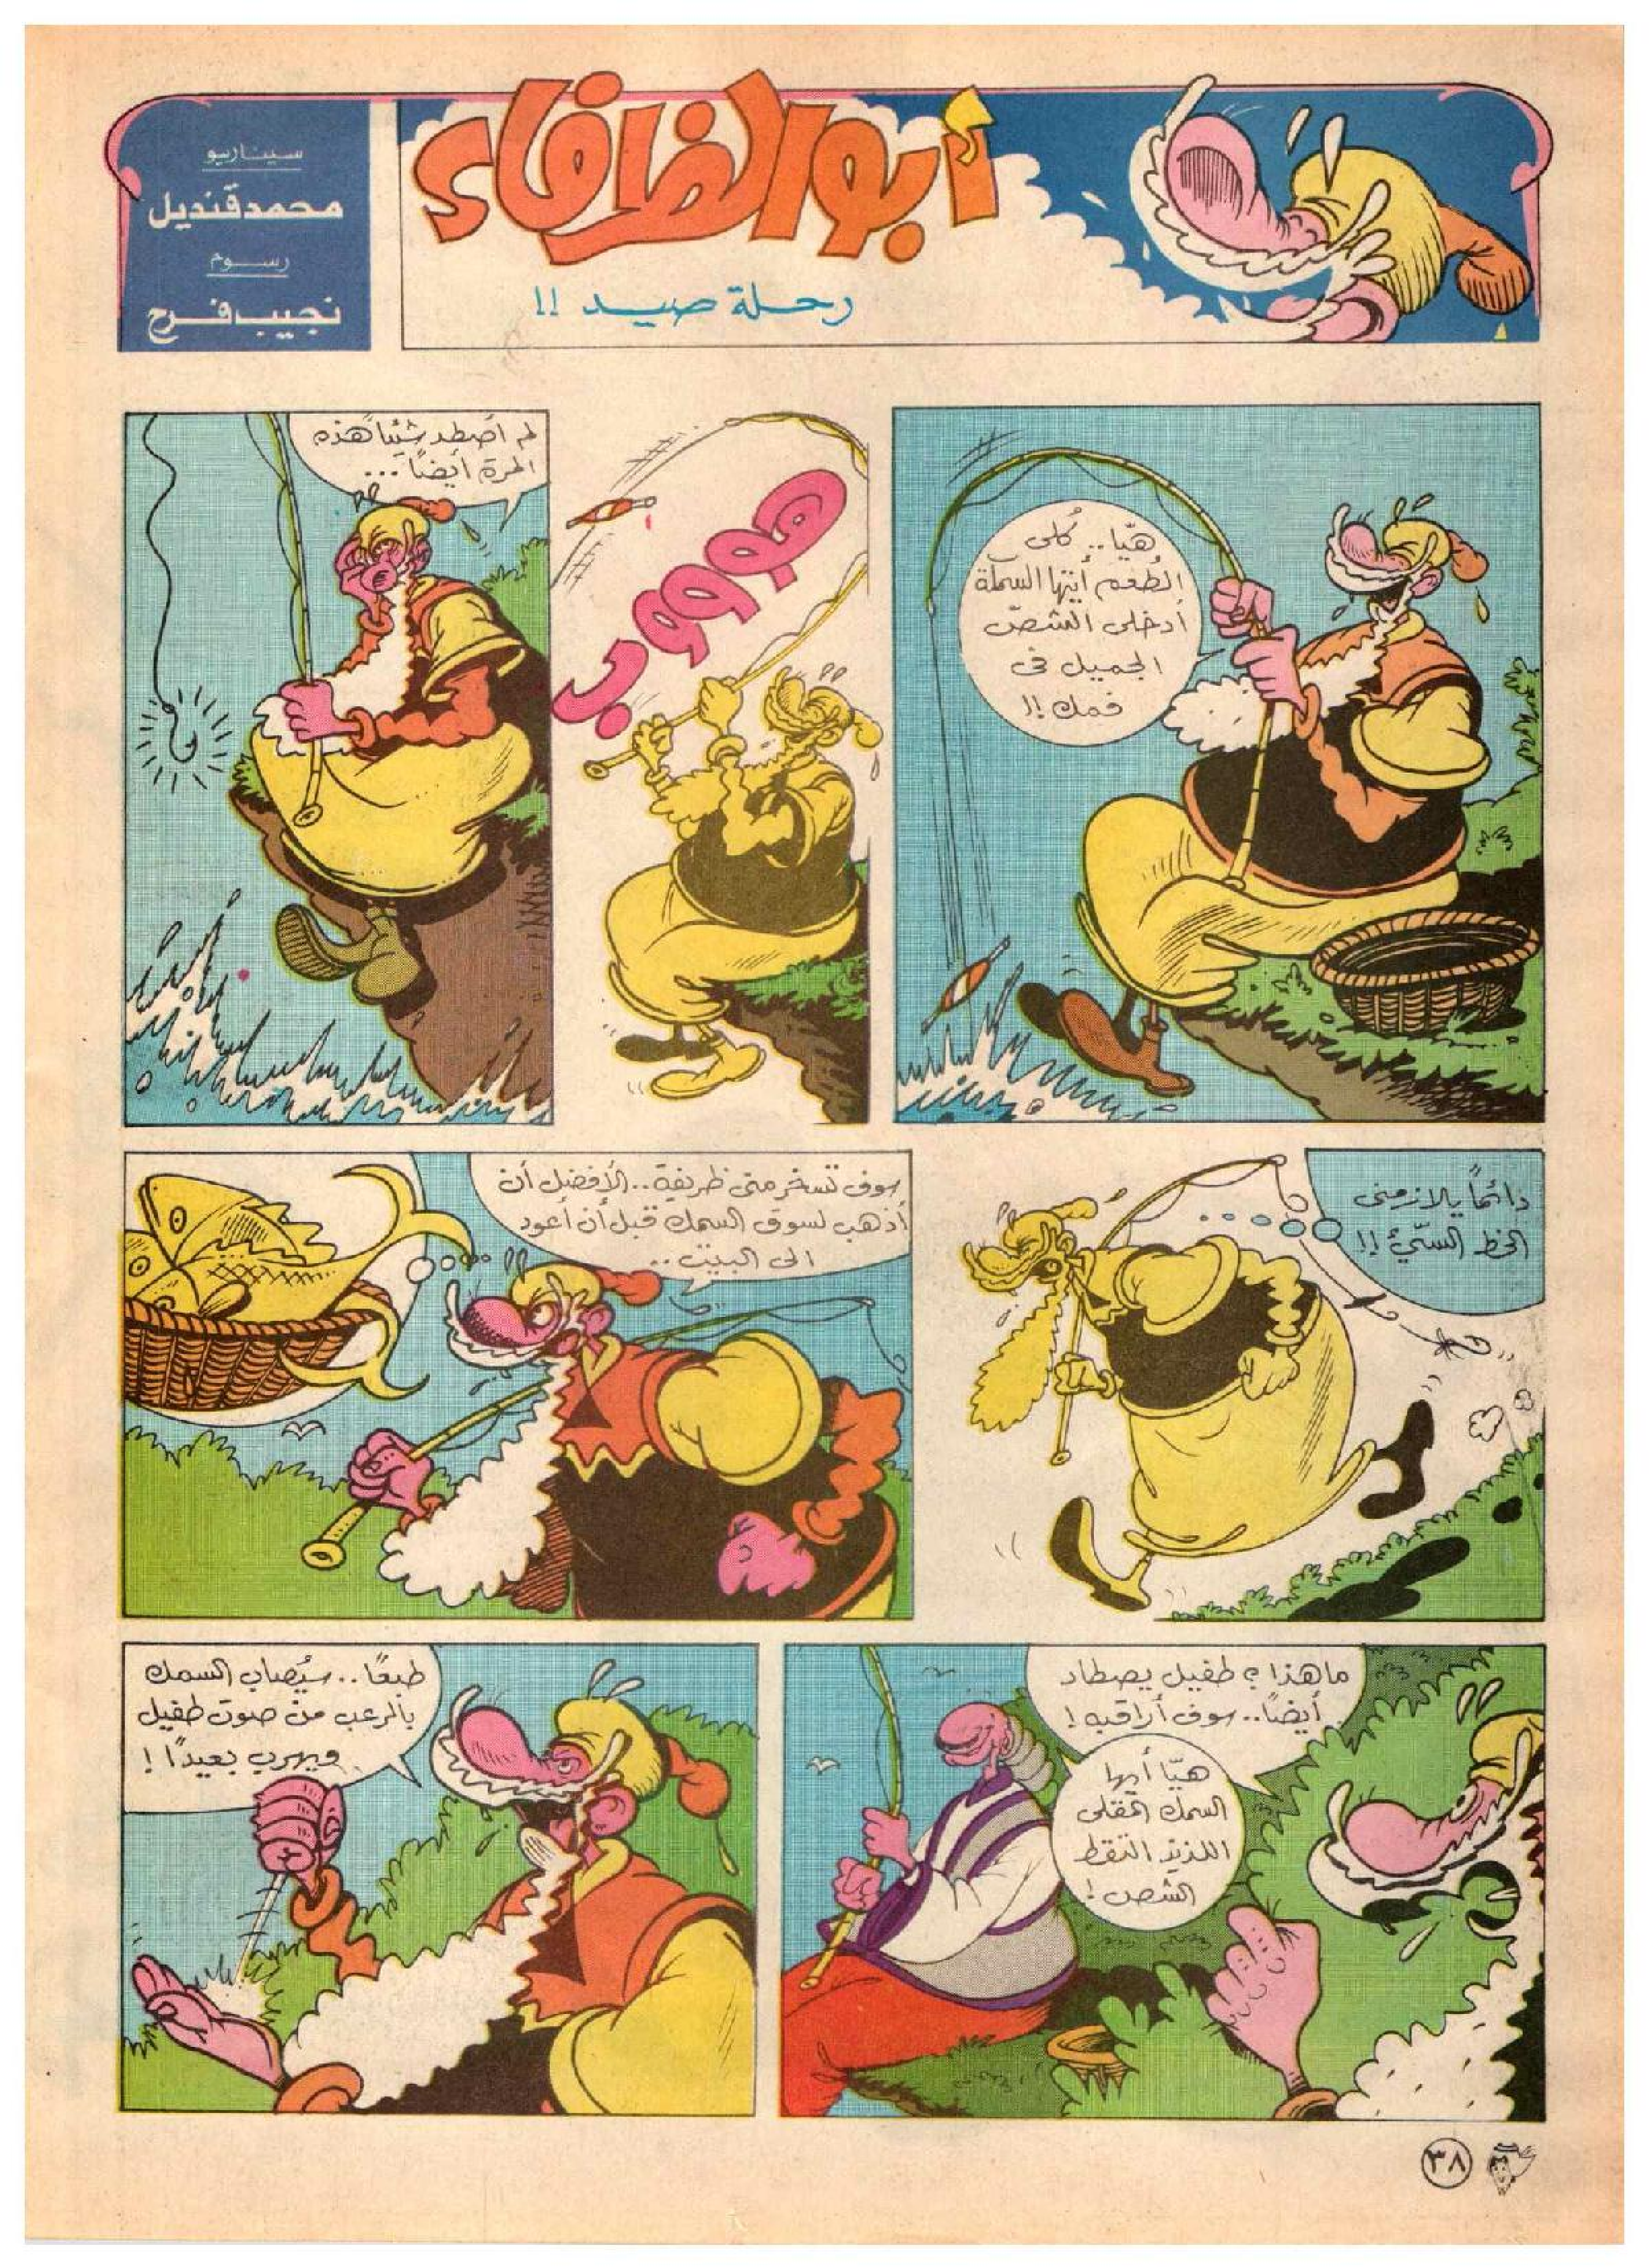 أبو الظرفاء
رحلة صيد !!
سيناريو
محمد قنديل
رسوم
نجيب فرح
هيّا.. كُلى
الطُعم أيتها السمكة
أدخلى الشصّ
الجميل فى
فمك !!
هوووب
لم أصطد شيئاً هذه
المرة أيضاً...
دائماً يلازمنى
الحظ السّيّئ !!
سوف تسخر منى ظريفة.. الأفضل أن
أذهب لسوق السمك قبل أن أعود
الى البيت ..
ما هذا ؟ طفيل يصطاد
أيضاً.. سوف أراقبه !
هيّا أيها
السمك المقلى
اللذيذ التقط
الشص !
طبعًا.. سيُصاب السمك
بالرعب من صوت طفيل
ويهرب بعيدًا !
٣٨